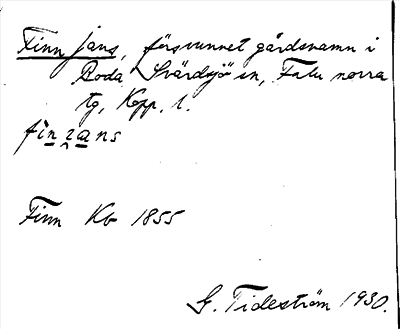 Finn jans, försvunnet gårdsnamn i
Boda Svärdsjö sn, Falu norra
tg, Kopp. l.
Finn Kb 1855
G. Tideström 1930.